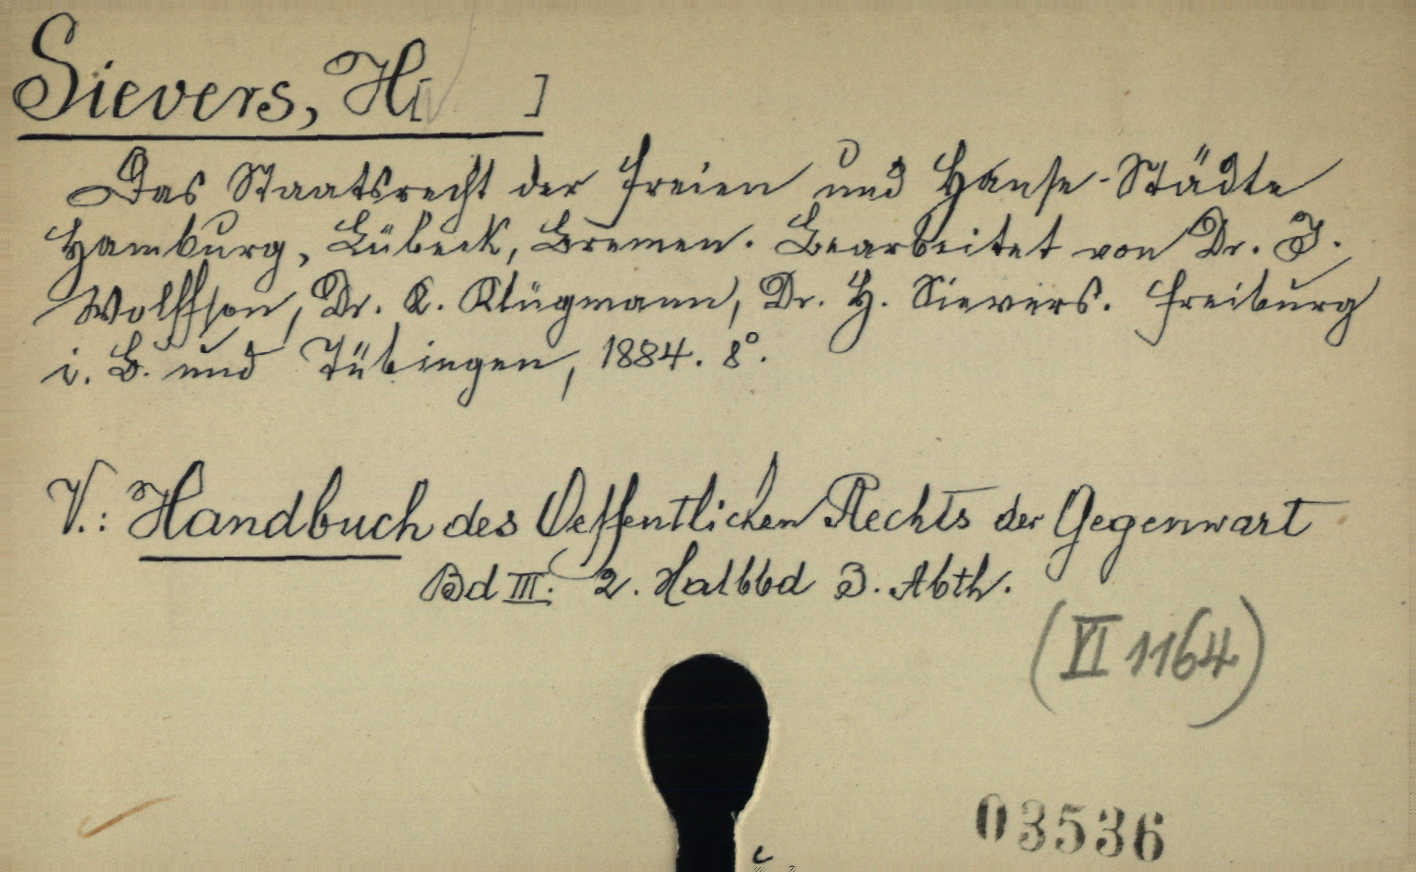 Sievers, H[ ]
Das Staatsrecht der freien und Hanse-Städte
Hamburg, Lübeck, Bremen. Bearbeitet von Dr. J.
Wolffson, Dr. K. Klügmann, Dr. H. Sievers. Freiburg
i. B. und Tübingen, 1884. 8°.
V.: Handbuch des Oeffentlichen Rechts der Gegenwart
Bd III. 2. Halbbd 3. Abth.
(VI 1164)
03536